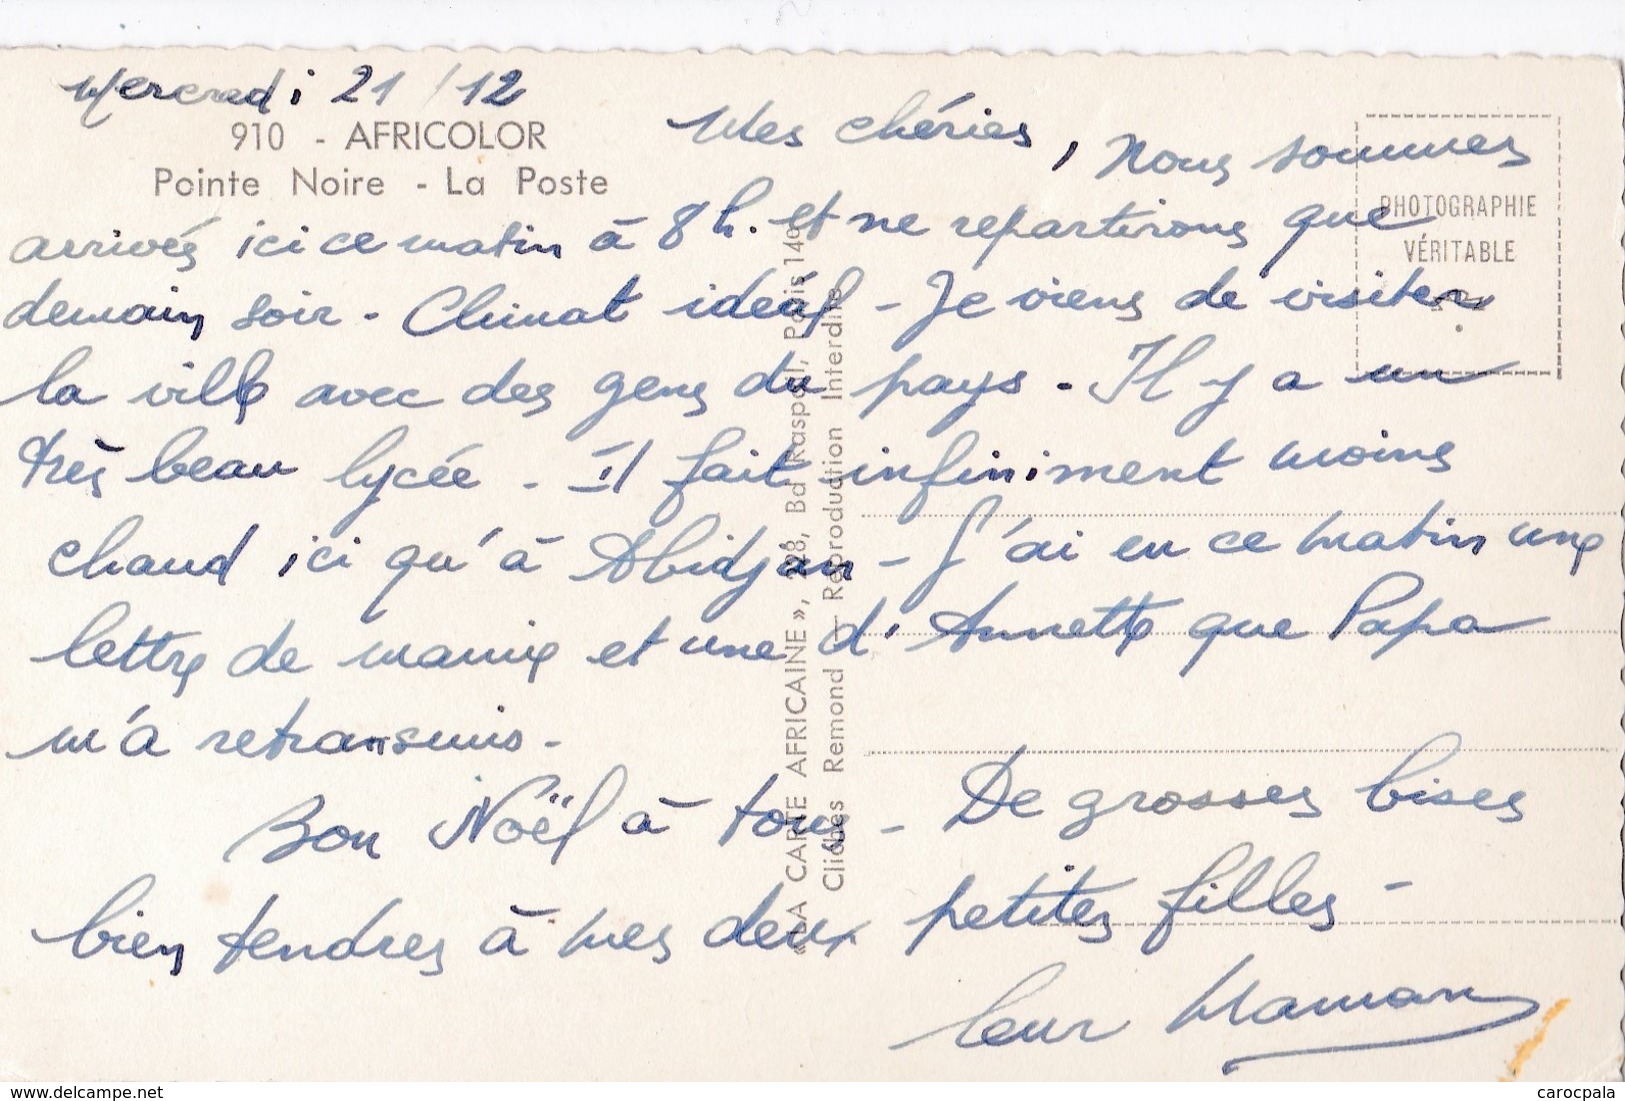 Mercredi 21/12
910 - AFRICOLOR
Pointe Noire - La Poste
Mes chéries, Nous sommes
PHOTOGRAPHIE
VÉRITABLE
arrivés ici ce matin à 8 h. et ne repartirons que
demain soir - Climat idéal - Je viens de visiter
la ville avec des gens du pays - Il y a un
très beau lycée - Il fait infiniment moins
chaud ici qu'à Abidjan - J'ai eu ce matin une
lettre de mamie et une d'Annette que Papa
m'a retransmis -
Bon Noël à tous - De grosses bises
bien tendres à mes deux petites filles -
leur Maman
« LA CARTE AFRICAINE », 228, Bd Raspail, Paris 14e
Clichés Remond — Reproduction Interdite
carocpala